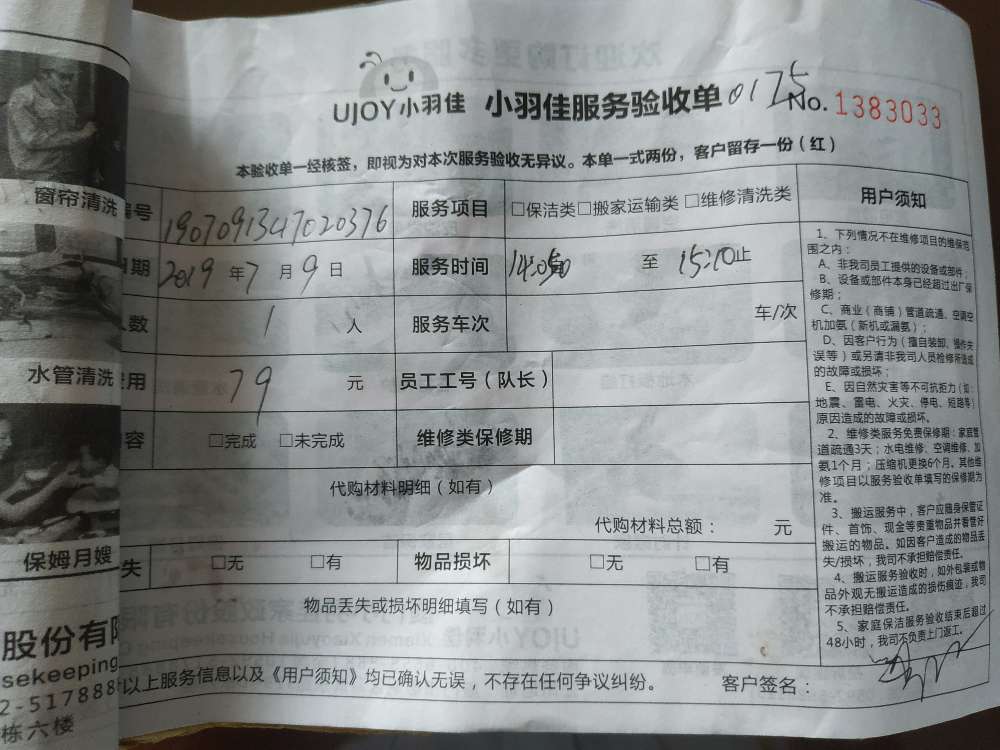 UJOY小羽佳 小羽佳服务验收单 0175 No. 1383033
本验收单一经核签，即视为对本次服务验收无异议。本单一式两份，客户留存一份（红）
编号 1907091347020376 服务项目 □保洁类□搬家运输类 □维修清洗类
日期 2019 年 7 月 9 日 服务时间 至 15:10 止
人数 1 人 服务车次 车/次
费用 79 元 员工工号（队长）
容 □完成 □未完成 维修类保修期
代购材料明细（如有）
代购材料总额： 元
失 □无 □有 物品损坏 □无 □有
物品丢失或损坏明细填写（如有）
以上服务信息以及《用户须知》均已确认无误，不存在任何争议纠纷。 客户签名：
用户须知
1、下列情况不在维修项目的维保范
围之内：
A、非我司员工提供的设备或部件；
B、设备或部件本身已经超过出厂保
修期；
C、商业（商铺）管道疏通、空调空
机加氨（新机或漏氨）；
D、因客户行为（擅自装卸、操作失
误等）或另请非我司人员检修所造成
的故障或损坏；
E、因自然灾害等不可抗拒力（如：
地震、雷电、火灾、停电、短路等）
原因造成的故障或损坏。
2、维修类服务免费保修期：家庭管
道疏通3天；水电维修、空调维修、加
氨1个月；压缩机更换6个月。其他维
修项目以服务验收单填写的保修期为
准。
3、搬运服务中，客户应随身保管证
件、首饰、现金等贵重物品并看管好
搬运的物品。如因客户造成的物品丢
失/损坏，我司不承担赔偿责任。
4、搬运服务验收时，如外包装或物
品外观无搬运造成的损伤痕迹，我司
不承担赔偿责任。
5、家庭保洁服务验收结束后超过
48小时，我司不负责上门返工。
窗帘清洗
水管清洗
保姆月嫂
股份有限
sekeeping
2-517888
栋六楼